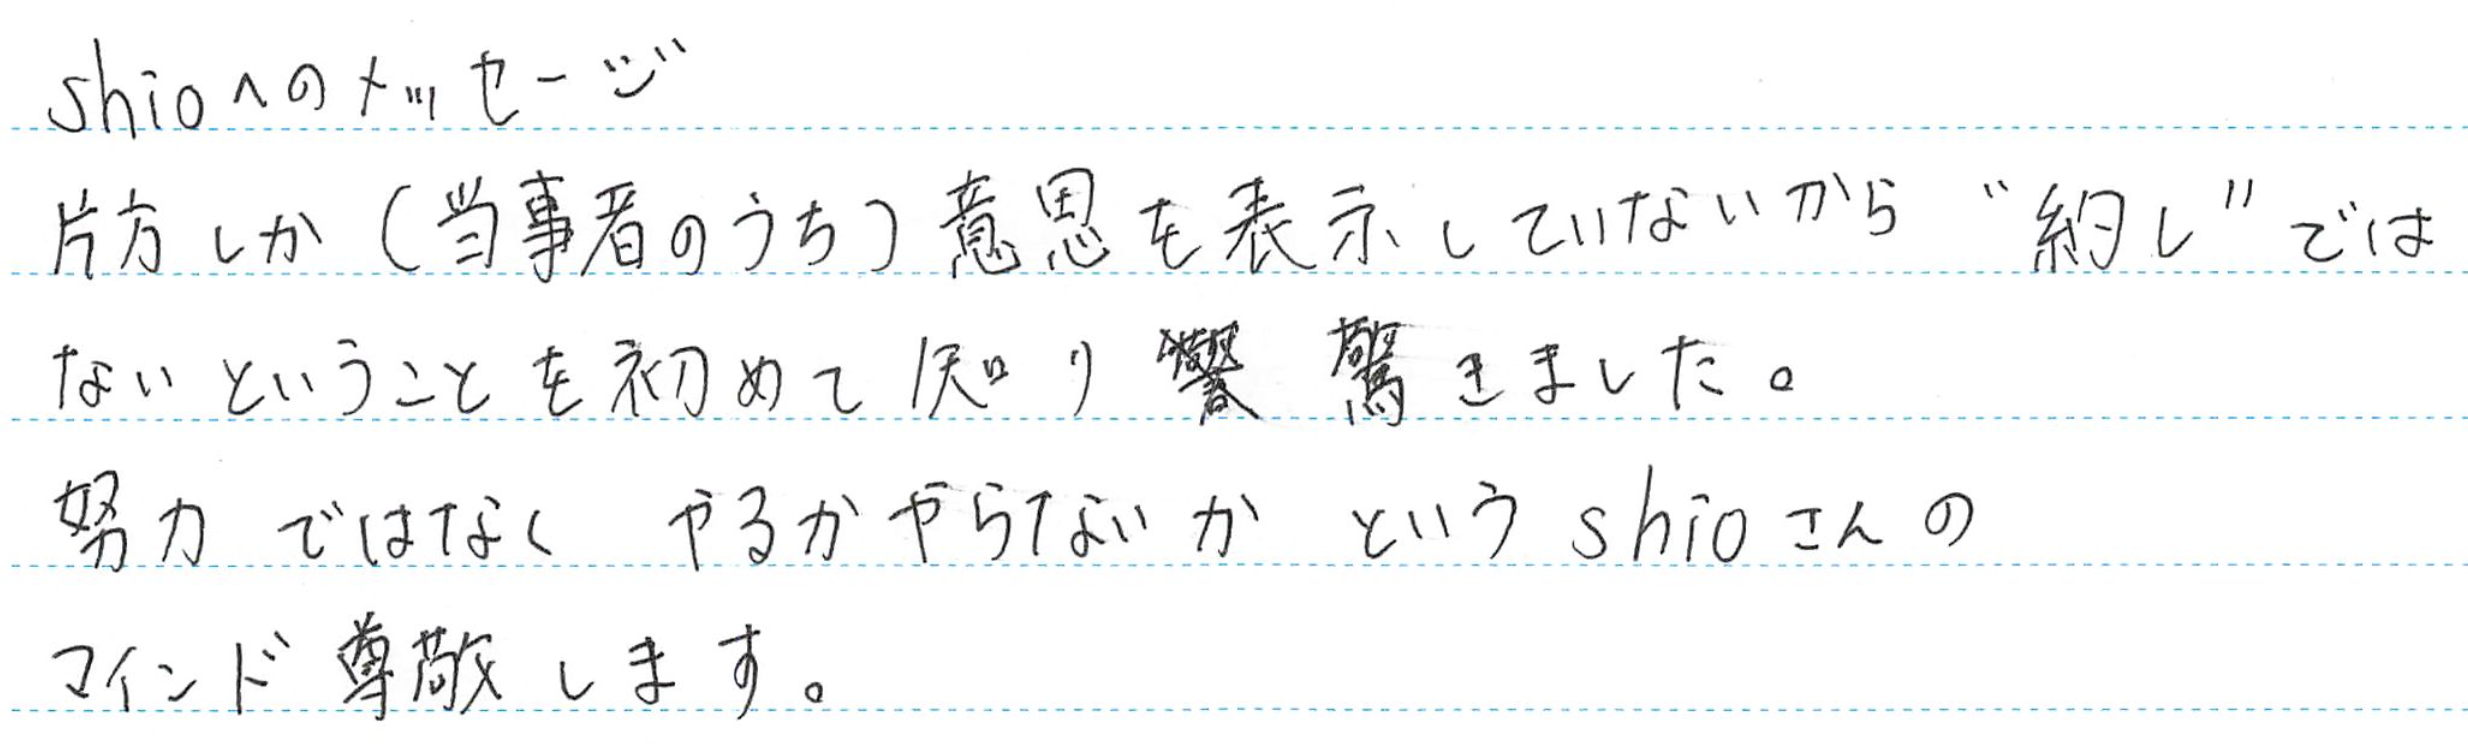 shioへのメッセージ
片方しか(当事者のうち)意思を表示していないから“約し”では
ないということを初めて知り 驚きました。
努力 ではなく やるかやらないか という shioさんの
マインド尊敬します。